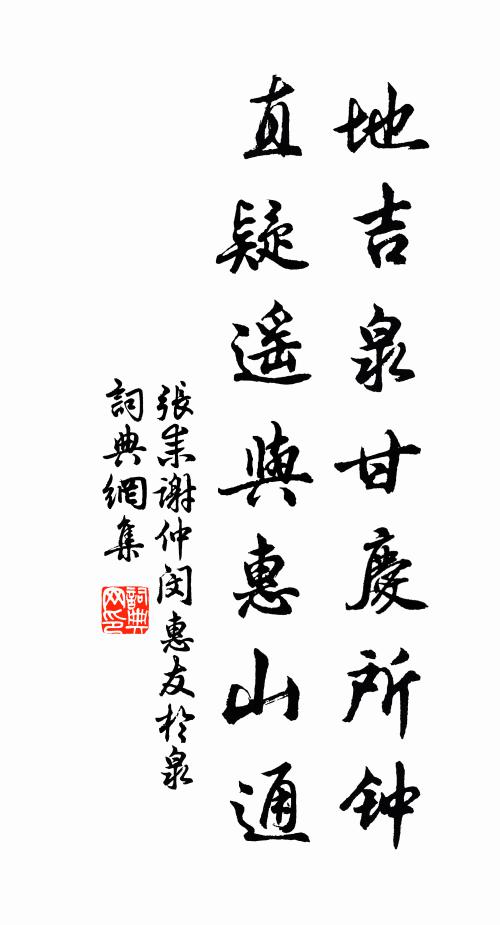 地吉泉甘慶所钟
直疑遥與惠山通
張耒谢仲闵惠友於泉
詞典網集
詞典网印